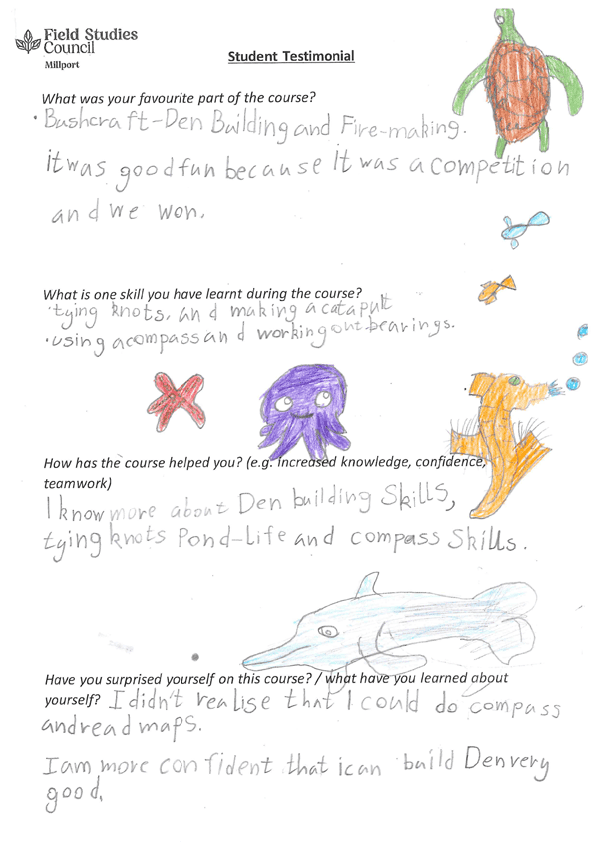 Field Studies
Council
Millport
Student Testimonial
What was your favourite part of the course?
• Bushcraft-Den Building and Fire-making.
it was good fun because It was a competition
and we won.
What is one skill you have learnt during the course?
•tying knots, and making a catapult
•using a compass and working out bearings.
How has the course helped you? (e.g. Increased knowledge, confidence,
teamwork)
I know more about Den building Skills,
tying knots Pond-Life and compass Skills.
Have you surprised yourself on this course? / what have you learned about
yourself? I didn't realise that I could do compass
and read maps.
I am more confident that i can build Den very
good.